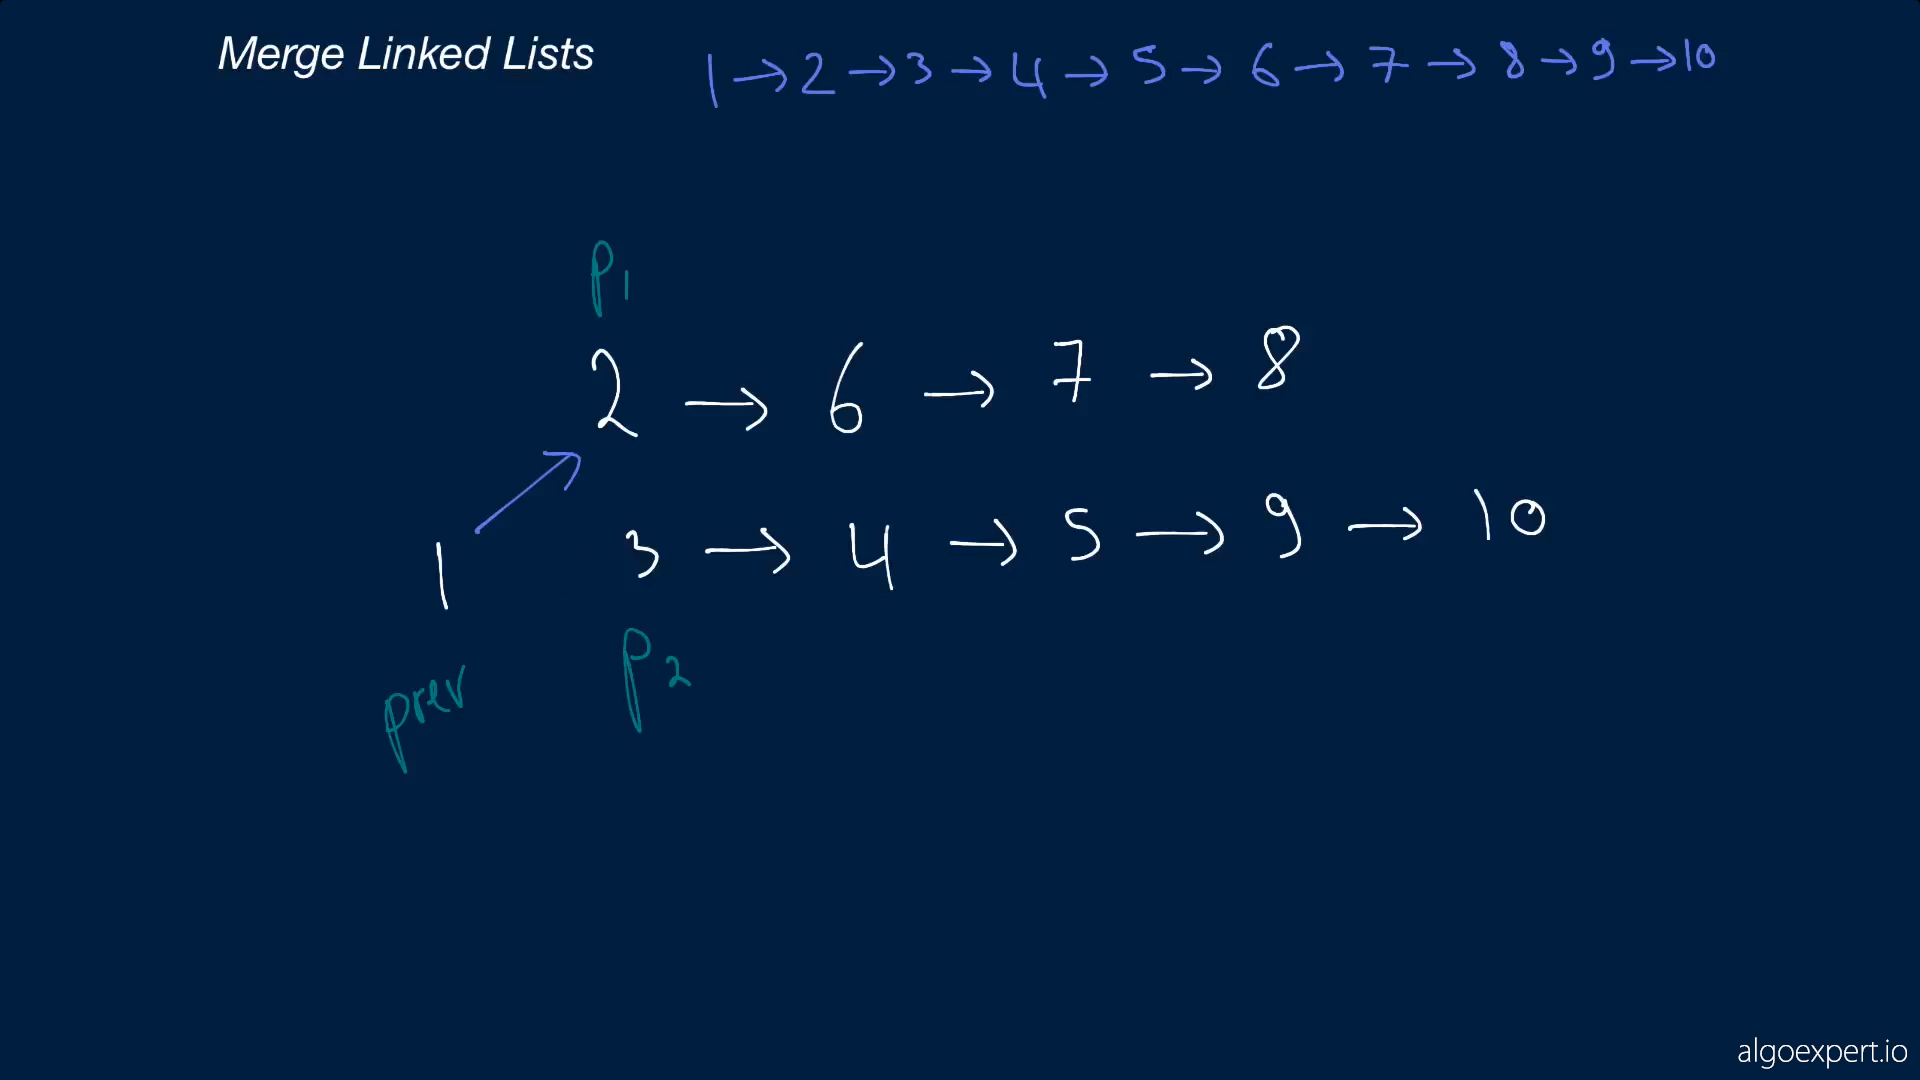 Merge Linked Lists
1 → 2 → 3 → 4 → 5 → 6 → 7 → 8 → 9 → 10
P1
2 → 6 → 7 → 8
1 3 → 4 → 5 → 9 → 10
prev P2
algoexpert.io